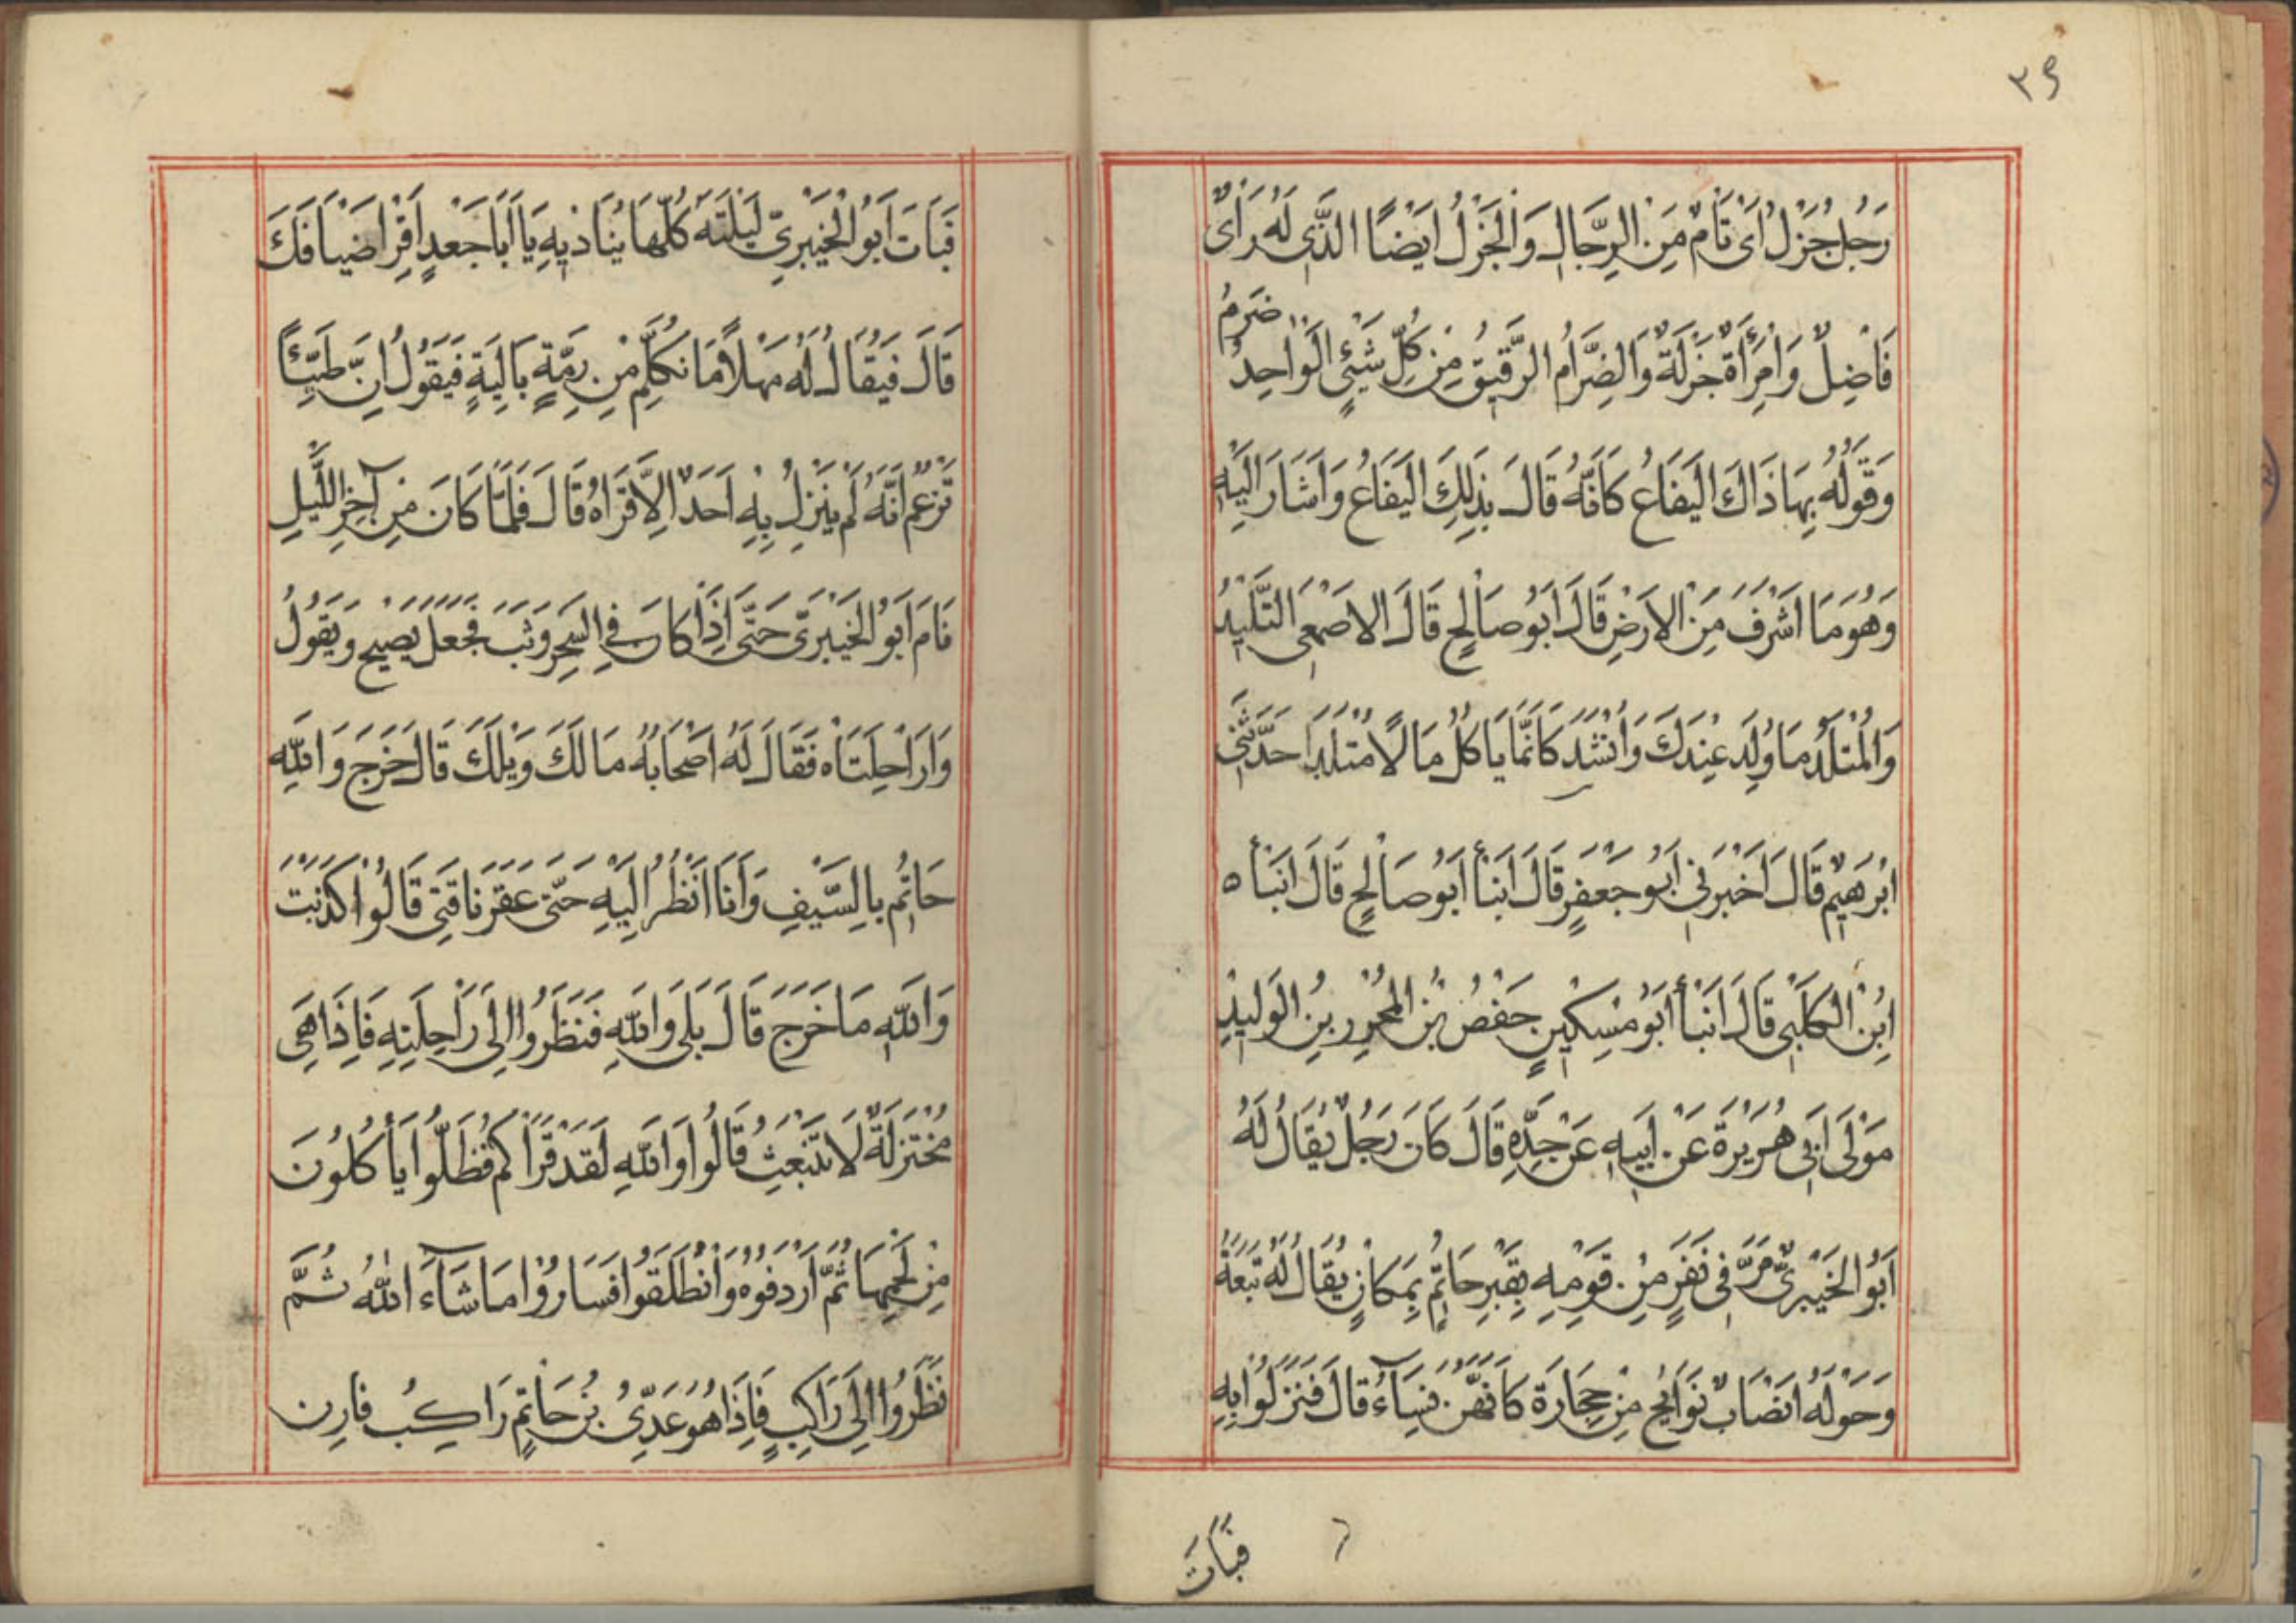 ٣٩
رَجُلٌ جَزْلٌ اَىْ تَامٌّ مِنَ الرِّجَالِ وَالْجَزْلُ اَيْضًا الَّذِى لَهُ رَأىٌ
ضَرِمُ
فَاضِلٌ وَامْرَأَةٌ جَزْلَةٌ وَالضِّرَامُ الرَّقِيقُ مِنْ كُلِّ شَيْئٍ الْوَاحِدُ
وَقَوْلُهُ بِهَا ذَاكَ الْيَفَاعُ كَاَنَّهُ قَالَ بِذَلِكَ الْيَفَاعُ وَاَشَارَ اِلَيْهِ
وَهُوَ مَا اَشْرَفَ مِنَ الْارَضِ قَالَ اَبُو صَالِحٍ قَالَ الاَصْمَعِى التَّلِيْدُ
وَالْمُتْلَدُ مَا وُلِدَ عِنْدَكَ وَاَنْشَدَ كَانَّمَا يَاكُلُ مَالًا مُتْلَدَا حَدَّثَنِى
اِبْرَهِيْمُ قَالَ اَخْبَرَنِى اَبُو جَعْفَرٍ قَالَ اَنْبَأَ اَبُو صَالِحٍ قَالَ اَنْبَأَ ه
اِبْنُ الْكَلْبِى قَالَ اَنْبَأَ اَبُو مِسْكِيْنٍ جَفْصُ بْنُ الْمُحْرِرِ بْنِ الْوَلِيْدِ
مَوْلَى اَبِى هُرَيْرَةَ عَنْ اَبِيْهِ عَنْ جَدِّهِ قَالَ كَانَ رَجُلٌ يُقَالُ لَهُ
اَبُو الْخَيْبَرِىِّ مَرَّ فِى نَفَرٍ مِنْ قَوْمِهِ بِقَبْرِ حَاتِمٍ بِمَكَانٍ يُقَالُ لَهُ تَبَعَةُ
وَحَوْلَهُ اَنْصَابٌ نَوَايِحُ مِنْ حِجَارَةَ كَاَنَّهُنَّ نِسَآءُ قَالَ فَنَزَلُوْا بِهِ
فَبَاتَ
فَبَاتَ اَبُو الْخَيْبَرِىِّ لَيْلَتَهُ كُلَّهَا يُنَادِيهِ يَا اَبَا جَعْدٍ اَقْرِ اَضْيَافَكَ
قَالَ فَيُقَالُ لَهُ مَهْلاً مَا نُكَلِّمُ مِنْ رِمَّةٍ بَالِيَةٍ فَيَقُولُ اِنَّ طَيِّئًا
تَزْعُمُ اَنَّهُ لَمْ يَنْزِلُ بِهِ اَحَدٌ اِلاَّ قَرَاهُ قَالَ فَلَمَّا كَانَ مِنْ آخِرِ اللَّيْلِ
نَامَ اَبُو الْخَيْبَرِىِّ حَتَّى اِذَا كَانَ فِى السَّحَرِ وَثَبَ فَجَعَلَ يَصِيْحُ وَيَقُولُ
وَارَاحِلَتَاهْ فَقَالَ لَهُ اَصْحَابُهُ مَالَكَ وَيْلَكَ قَالَ خَرَجَ وَاللهِ
حَاتِمُ بِالسَّيْفِ وَاَنَا اَنْظُرُ اِلَيْهِ حَتَّى عَقَرَ نَاقَتِى قَالُوْا كَذَبْتَ
وَاللهِ مَا خَرَجَ قَالَ بَلَى وَاللهِ فَنَظَرُوْا اِلَى رَاحِلَتِهِ فَاِذَا هِىَ
مُخْتَزِلَةٌ لَا تَنْبَعِثُ قَالُوا وَاللهِ لَقَدْ قَرَاكُمْ فَظَلُّوا يَأْكُلُونَ
مِنْ لَحْمِهَا ثُمَّ اَرْدَفُوهُ وَانْطَلَقُوا فَسَارُوْا مَا شَآءَ اللهُ ثُمَّ
نَظَرُوا اِلَى رَاكِبٍ فَاِذَا هُوَ عَدِىُّ بْنُ حَاتِمٍ رَاكِبُ قَارِن